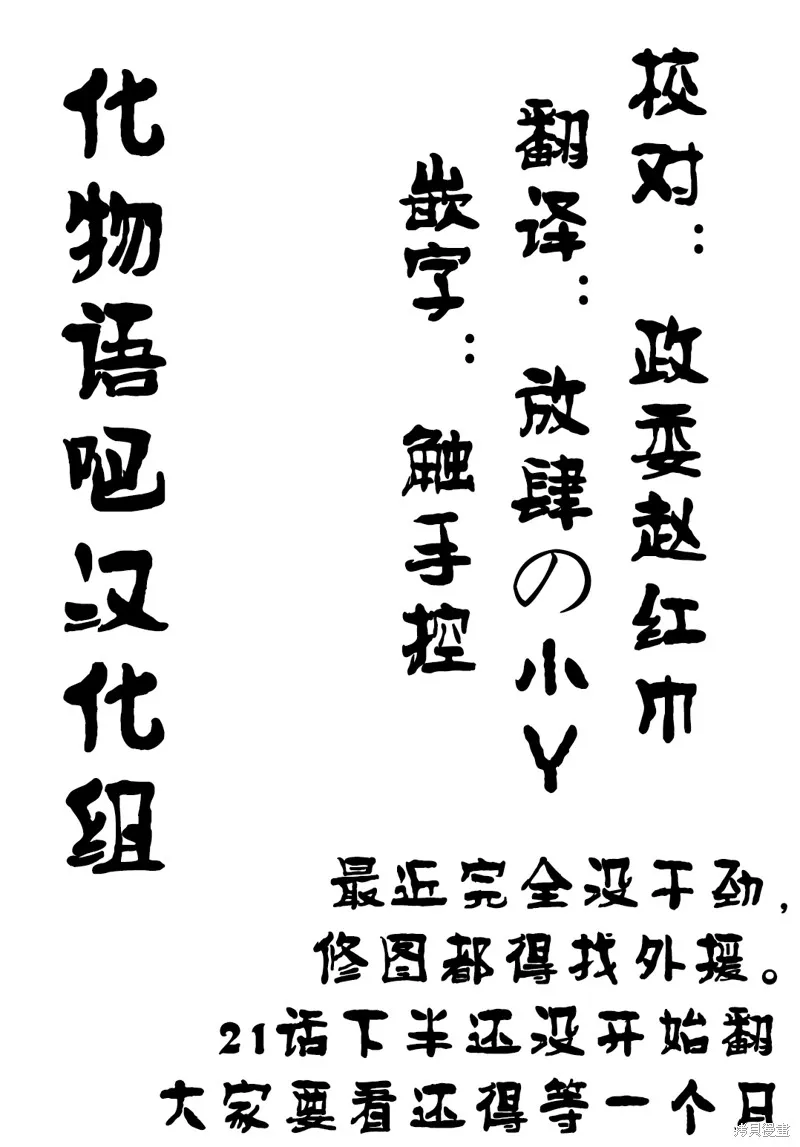 校对：政委赵红巾
翻译：放肆の小丫
嵌字：触手控
化物语吧汉化组
最近完全没干劲，
修图都得找外援。
21话下半还没开始翻
大家要看还得等一个月
拷貝漫畫